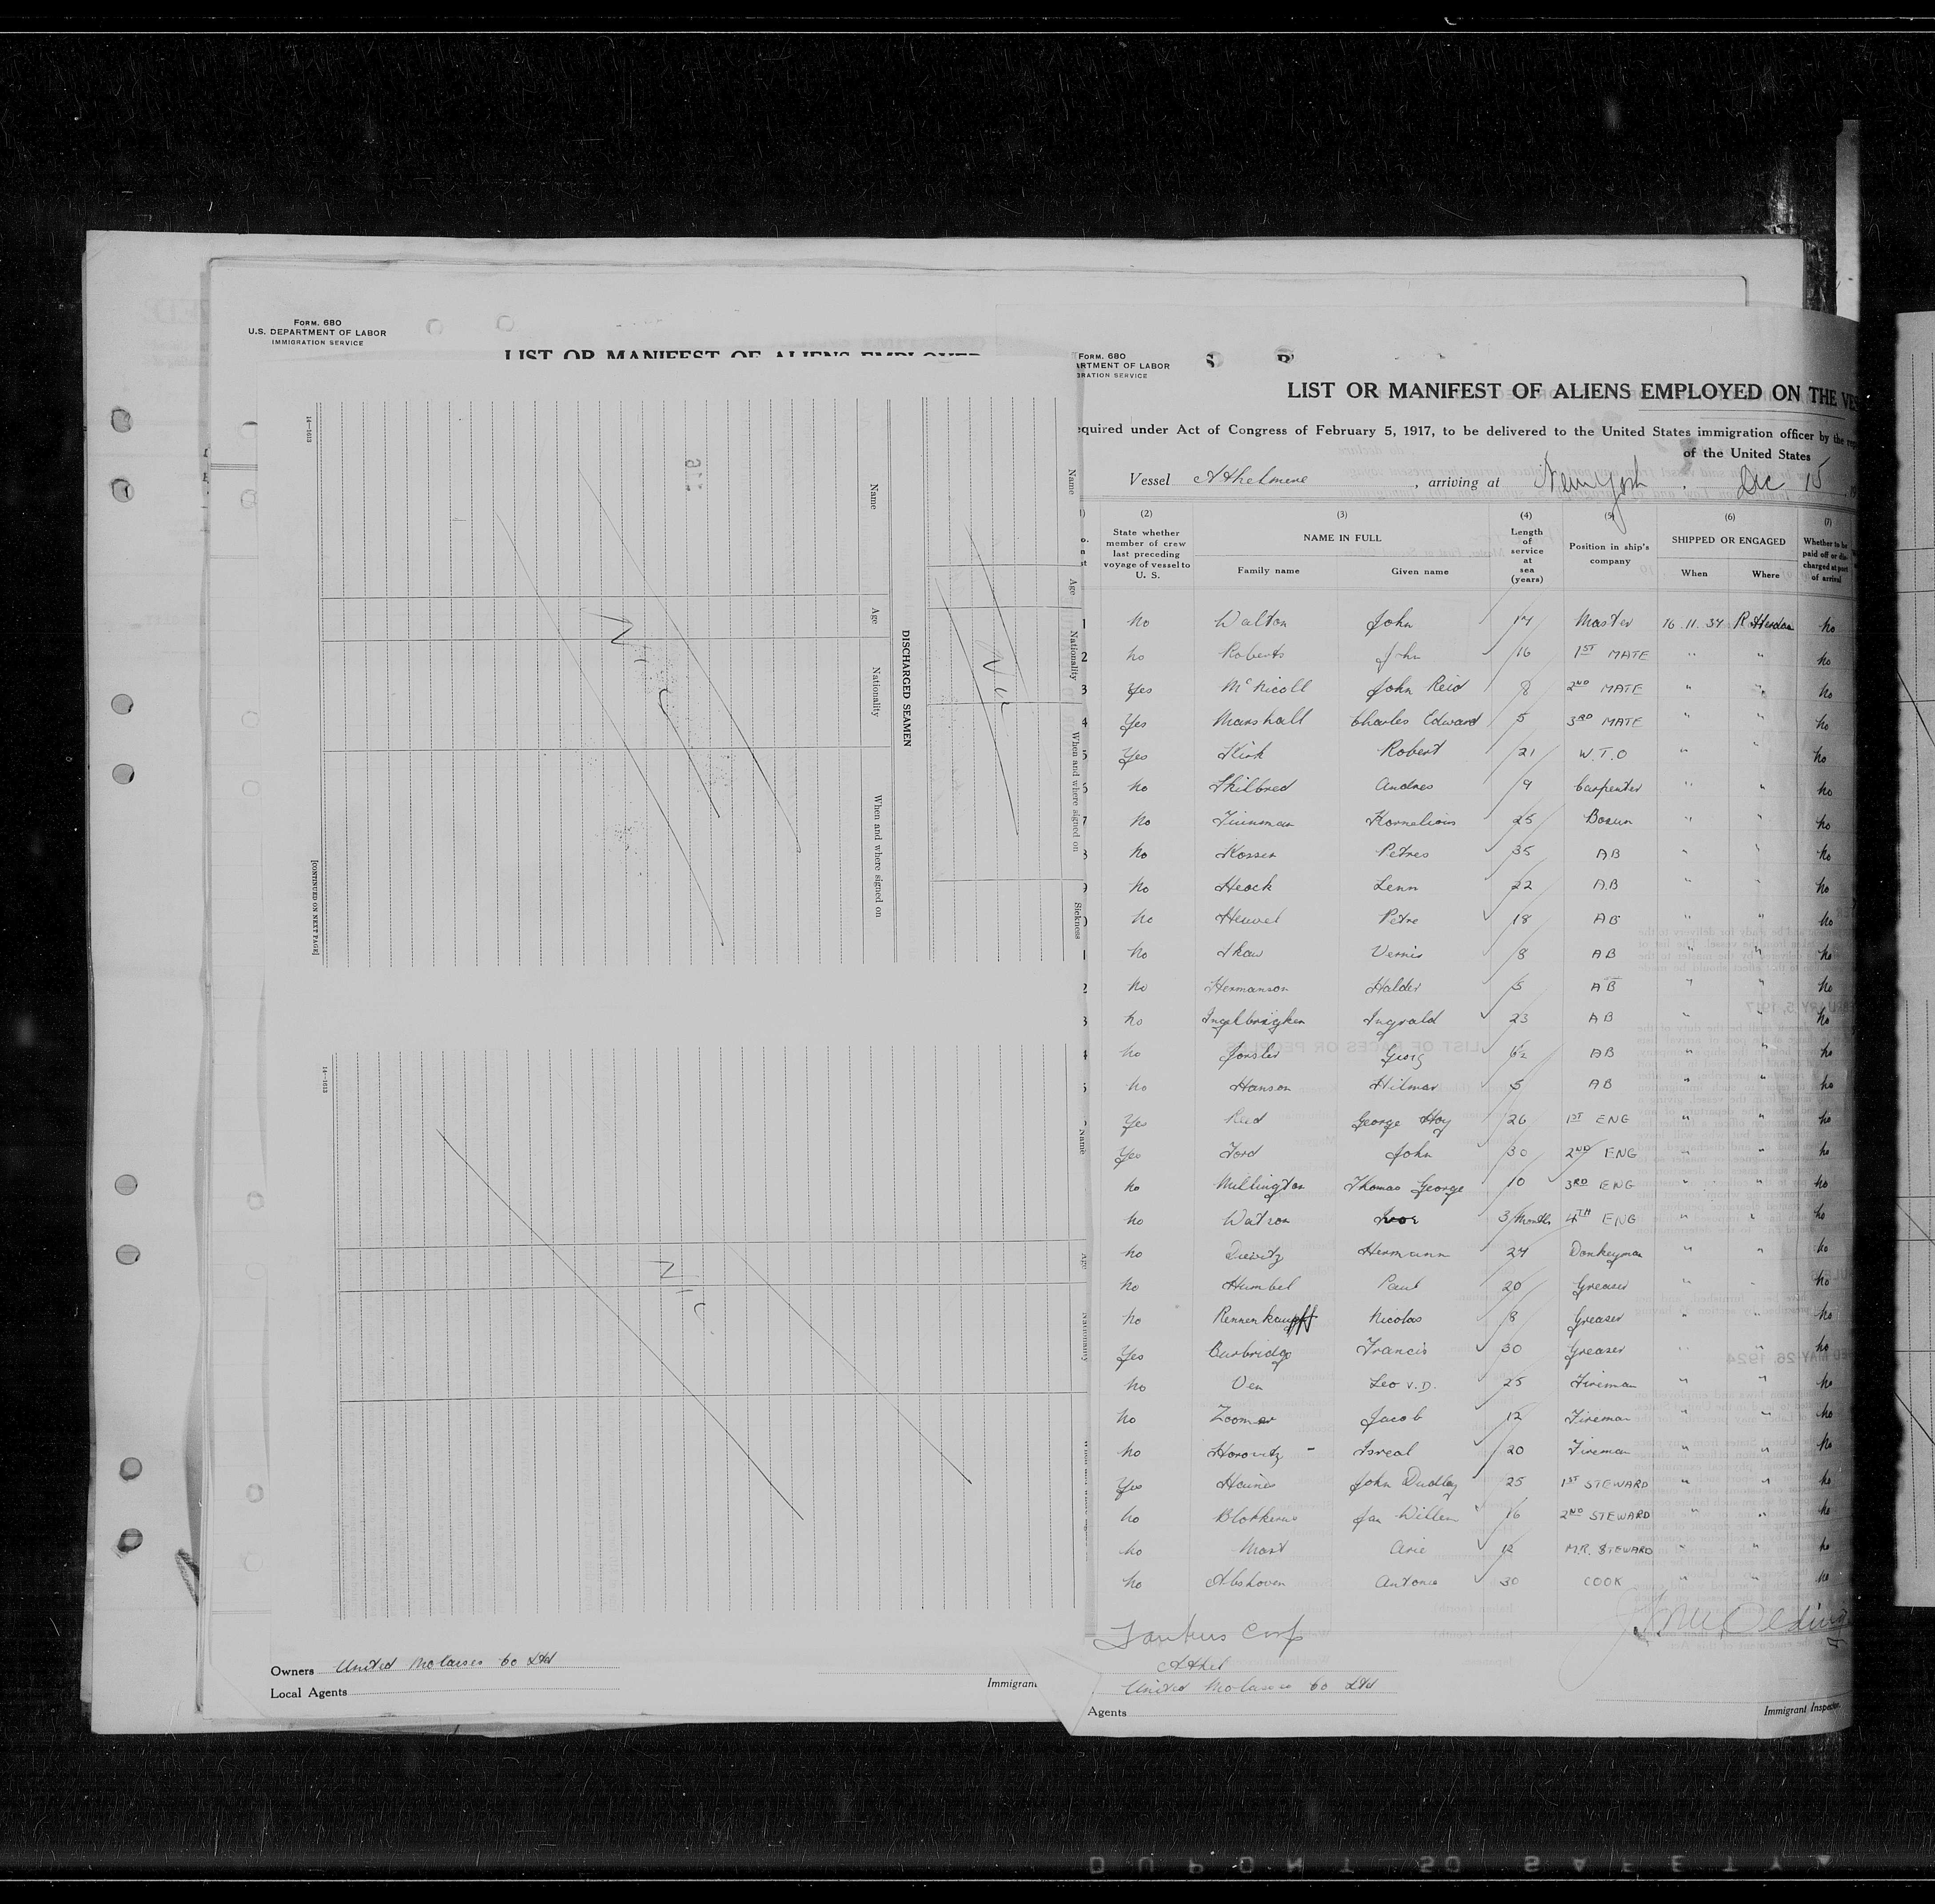 Form. 680
U.S. DEPARTMENT OF LABOR
IMMIGRATION SERVICE
LIST OR MANIFEST OF ALIENS EMPLOYED
Name Age Nationality When and where signed on Sickness
Nil
DISCHARGED SEAMEN
Name Age Nationality When and where signed on
Nil
14—1613
[CONTINUED ON NEXT PAGE]
Name Age Nationality
Nil
14—1613
Owners United Molasses Co Ltd
Local Agents
Immigran
Form. 680
ARTMENT OF LABOR
GRATION SERVICE
LIST OR MANIFEST OF ALIENS EMPLOYED ON THE VES
equired under Act of Congress of February 5, 1917, to be delivered to the United States immigration officer by the
of the United States
Vessel Athelmere, arriving at New York, Dec 15
(2) (3) (4) (5) (6) (7)
State whether member of crew last preceding voyage of vessel to U. S.
NAME IN FULL
Family name Given name
Length of service at sea (years)
Position in ship's company
SHIPPED OR ENGAGED
When Where
Whether to be paid off or discharged at port of arrival
1 No Walton John 14 Master 16.11.34 Rotterdam No
2 No Roberts John 16 1ST MATE " " No
3 Yes McNicoll John Reid 8 2ND MATE " " No
4 Yes Marshall Charles Edward 5 3RD MATE " " No
5 Yes Kirk Robert 21 W.T.O " " No
6 No Skilbred Andres 9 Carpenter " " No
7 No Kornelious 25 Bosun " " No
8 No Kosser Petres 35 AB " " No
9 No Heock Lenn 22 AB " " No
0 No Heuvel Petre 18 AB " " No
1 No Shaw Vernis 8 AB " " No
2 No Hermanson Halder 5 AB " " No
3 No Ingvald 23 AB " " No
4 No Georg AB " " No
5 No Hanson Hilmar 5 AB " " No
Yes Reid George Hoy 26 1ST ENG " " No
Yes Ford John 30 2ND ENG " " No
No Millington Thomas George 10 3RD ENG " " No
No Watson Ivor 3 Months 4TH ENG " " No
No Hermann 24 Donkeyman " " No
No Humbel Paul 20 Greaser " " No
No Rennenkampff Nicolas 8 Greaser " " No
Yes Burbridge Francis 30 Greaser " " No
No Ven Leo V.D. 25 Fireman " " No
No Zoomer Jacob 12 Fireman " " No
No Horovitz - Isreal 20 Fireman " " No
Yes Haines John Dudley 25 1ST STEWARD " " No
No Blokkerus Jan Willem 16 2ND STEWARD " " No
No Mast Arie 12 M.R. STEWARD " " No
No Abshoven Antonie 30 COOK " " No
Tankers Corp
Athel
United Molasses Co Ltd
Agents
Immigrant Inspector.
DUPONT SO SAFETY